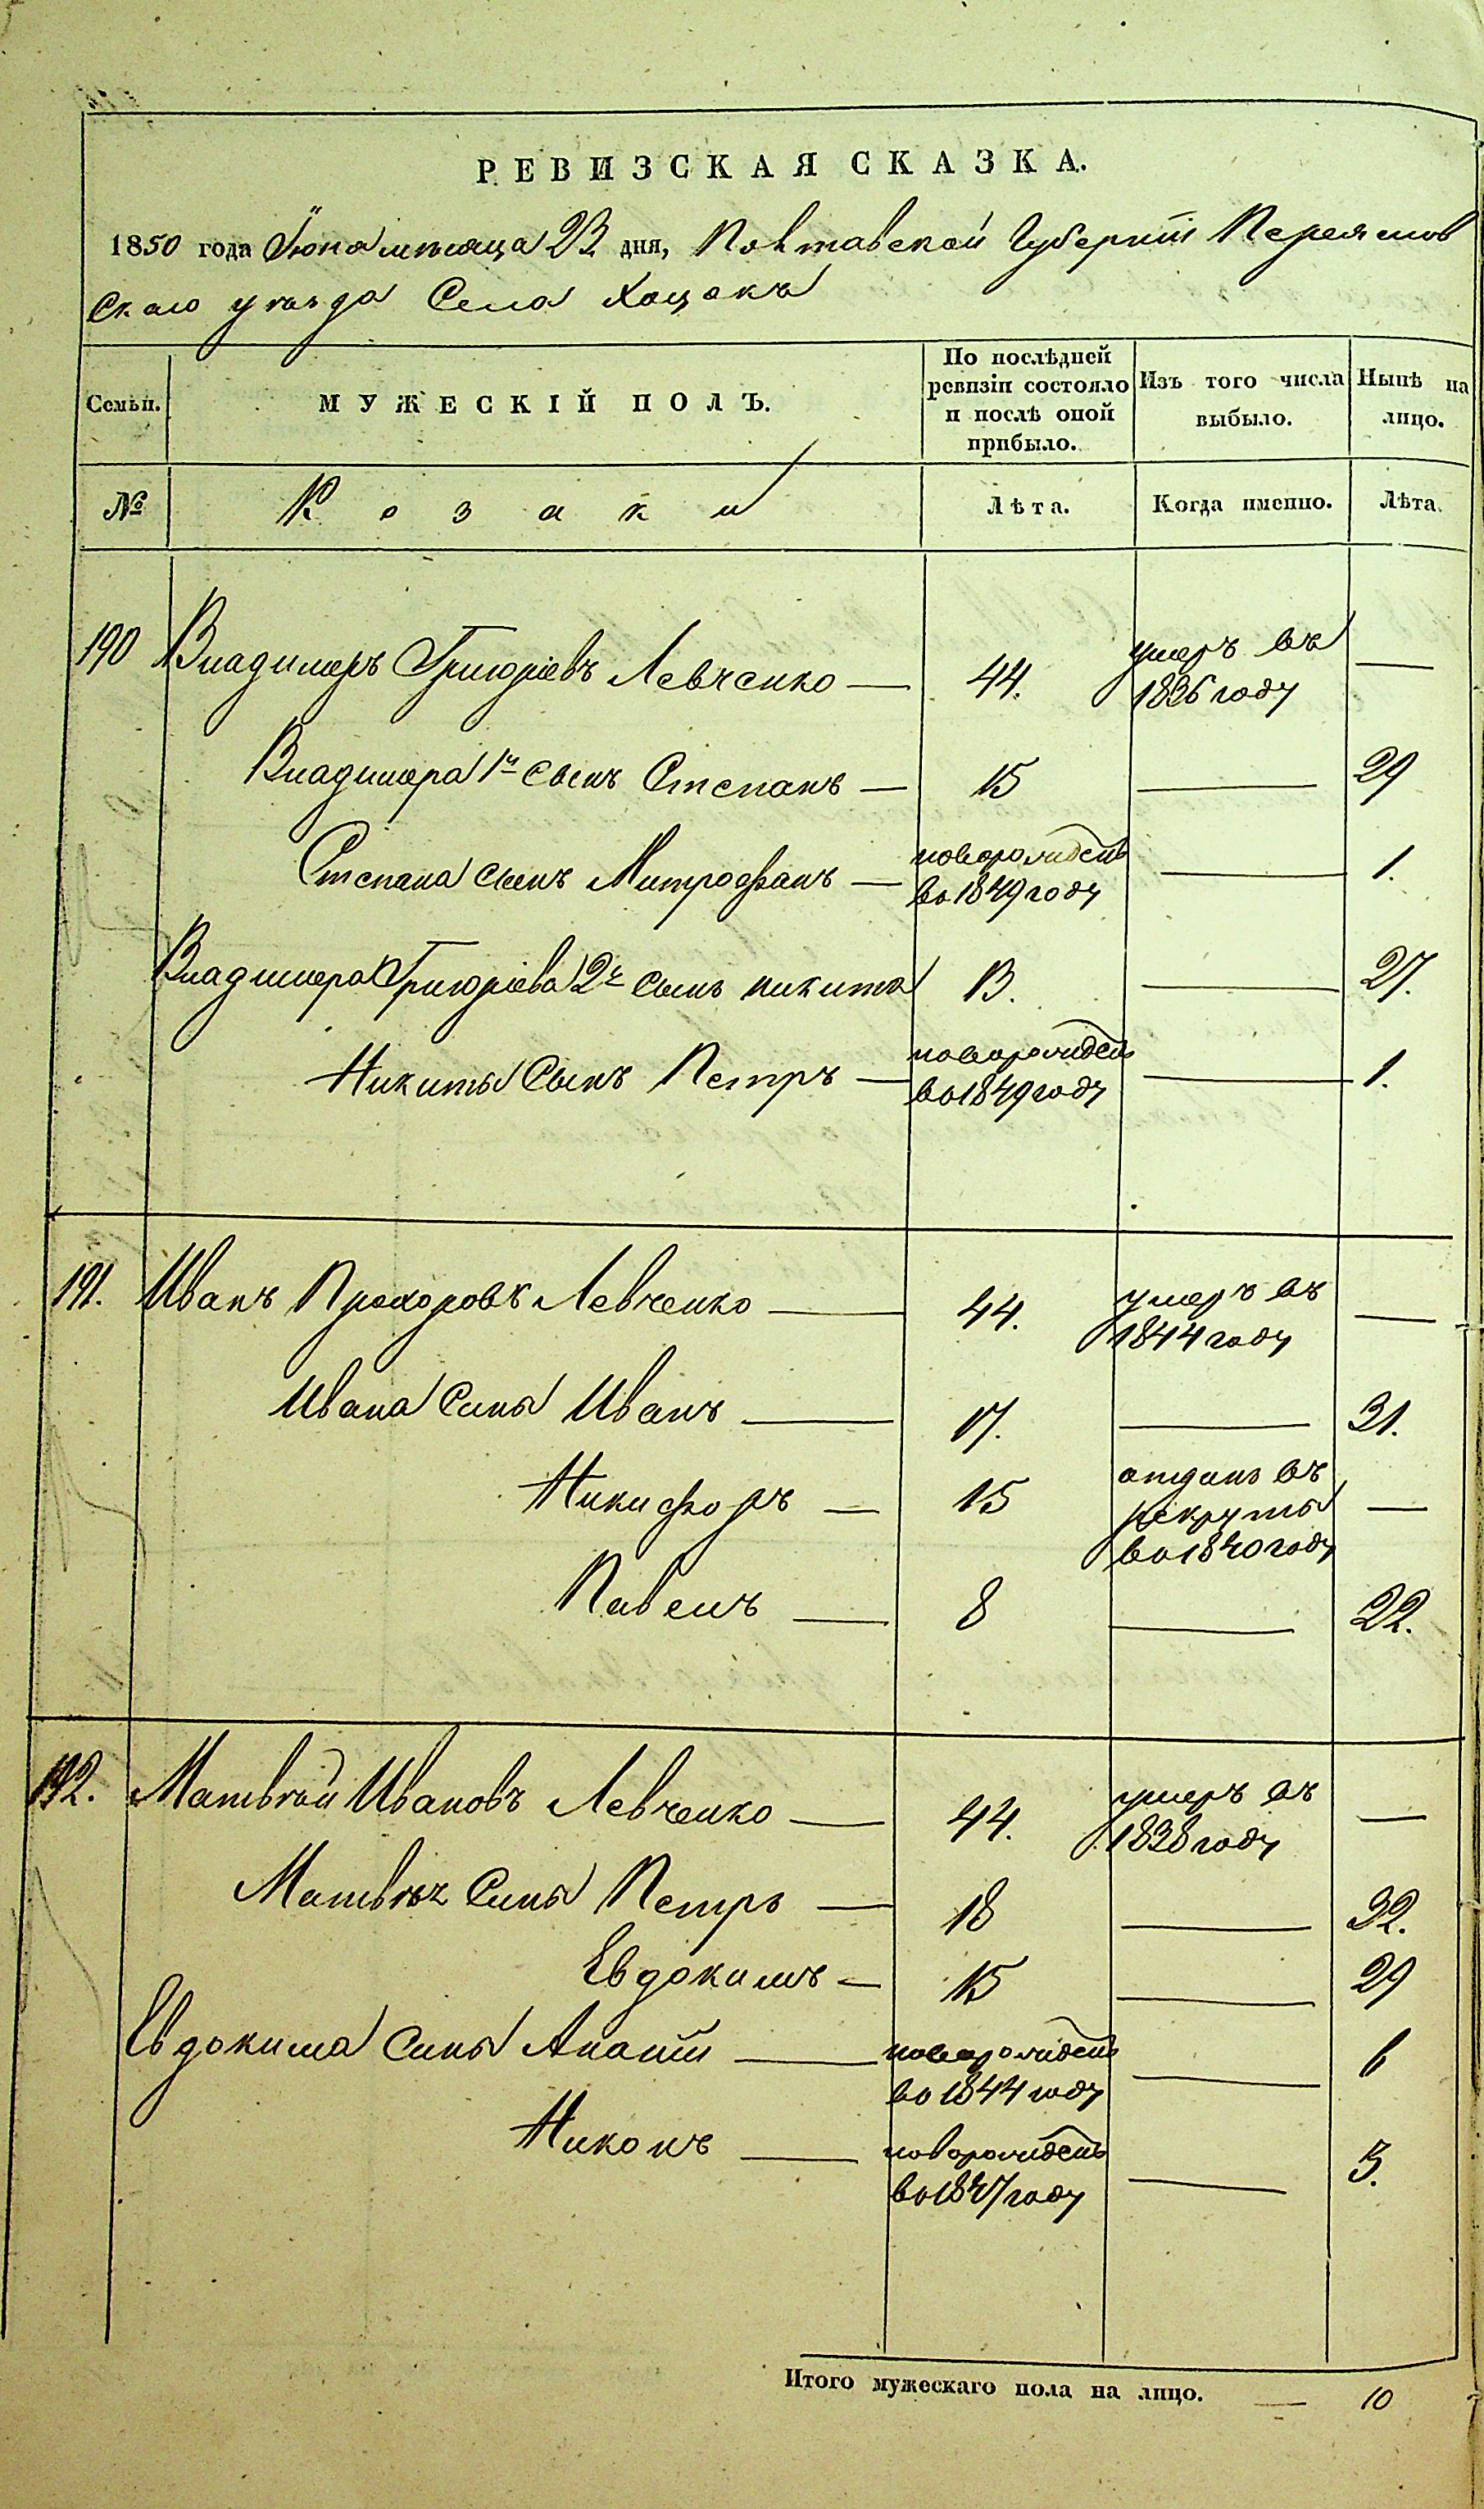 РЕВИЗСКАЯ СКАЗКА.
1850 года Іюня мѣсяца 23 дня, Полтавской Губерніи Переяслов
скаго уѣзда Села Хоцокъ
Семьи. МУЖЕСКІЙ ПОЛЪ. По послѣдней ревизіи состояло и послѣ оной прибыло. Изъ того числа выбыло. Нынѣ на лицо.
№ Козаки Лѣта. Когда именно. Лѣта.
190 Владимеръ Григоріевъ Левченко — 44. умеръ въ 1836 году —
Владимера 1й сынъ Степанъ — 15 — 29
Степана сынъ Митрофанъ — новорожденъ во 1849 году — 1.
Владимера Григоріева 2й сынъ никита 13. — 27.
Никиты Сынъ Петръ — новорожденъ во 1849 году — 1.
191. Иванъ Прохоровъ Левченко — 44. умеръ въ 1844 году —
Ивана Сыны Иванъ — 17. — 31.
Никифоръ — 15 отданъ въ рекруты во 1840 году —
Павелъ — 8 — 22.
192. Матвѣй Ивановъ Левченко — 44. умеръ въ 1838 году —
Матвѣя Сыны Петръ — 18 — 32.
Евдокимъ — 15 — 29
Евдокима Сыны Ананій — новорожденъ во 1844 году — 6
Никонъ — новорожденъ во 1847 году — 3.
Итого мужескаго пола на лицо. — 10